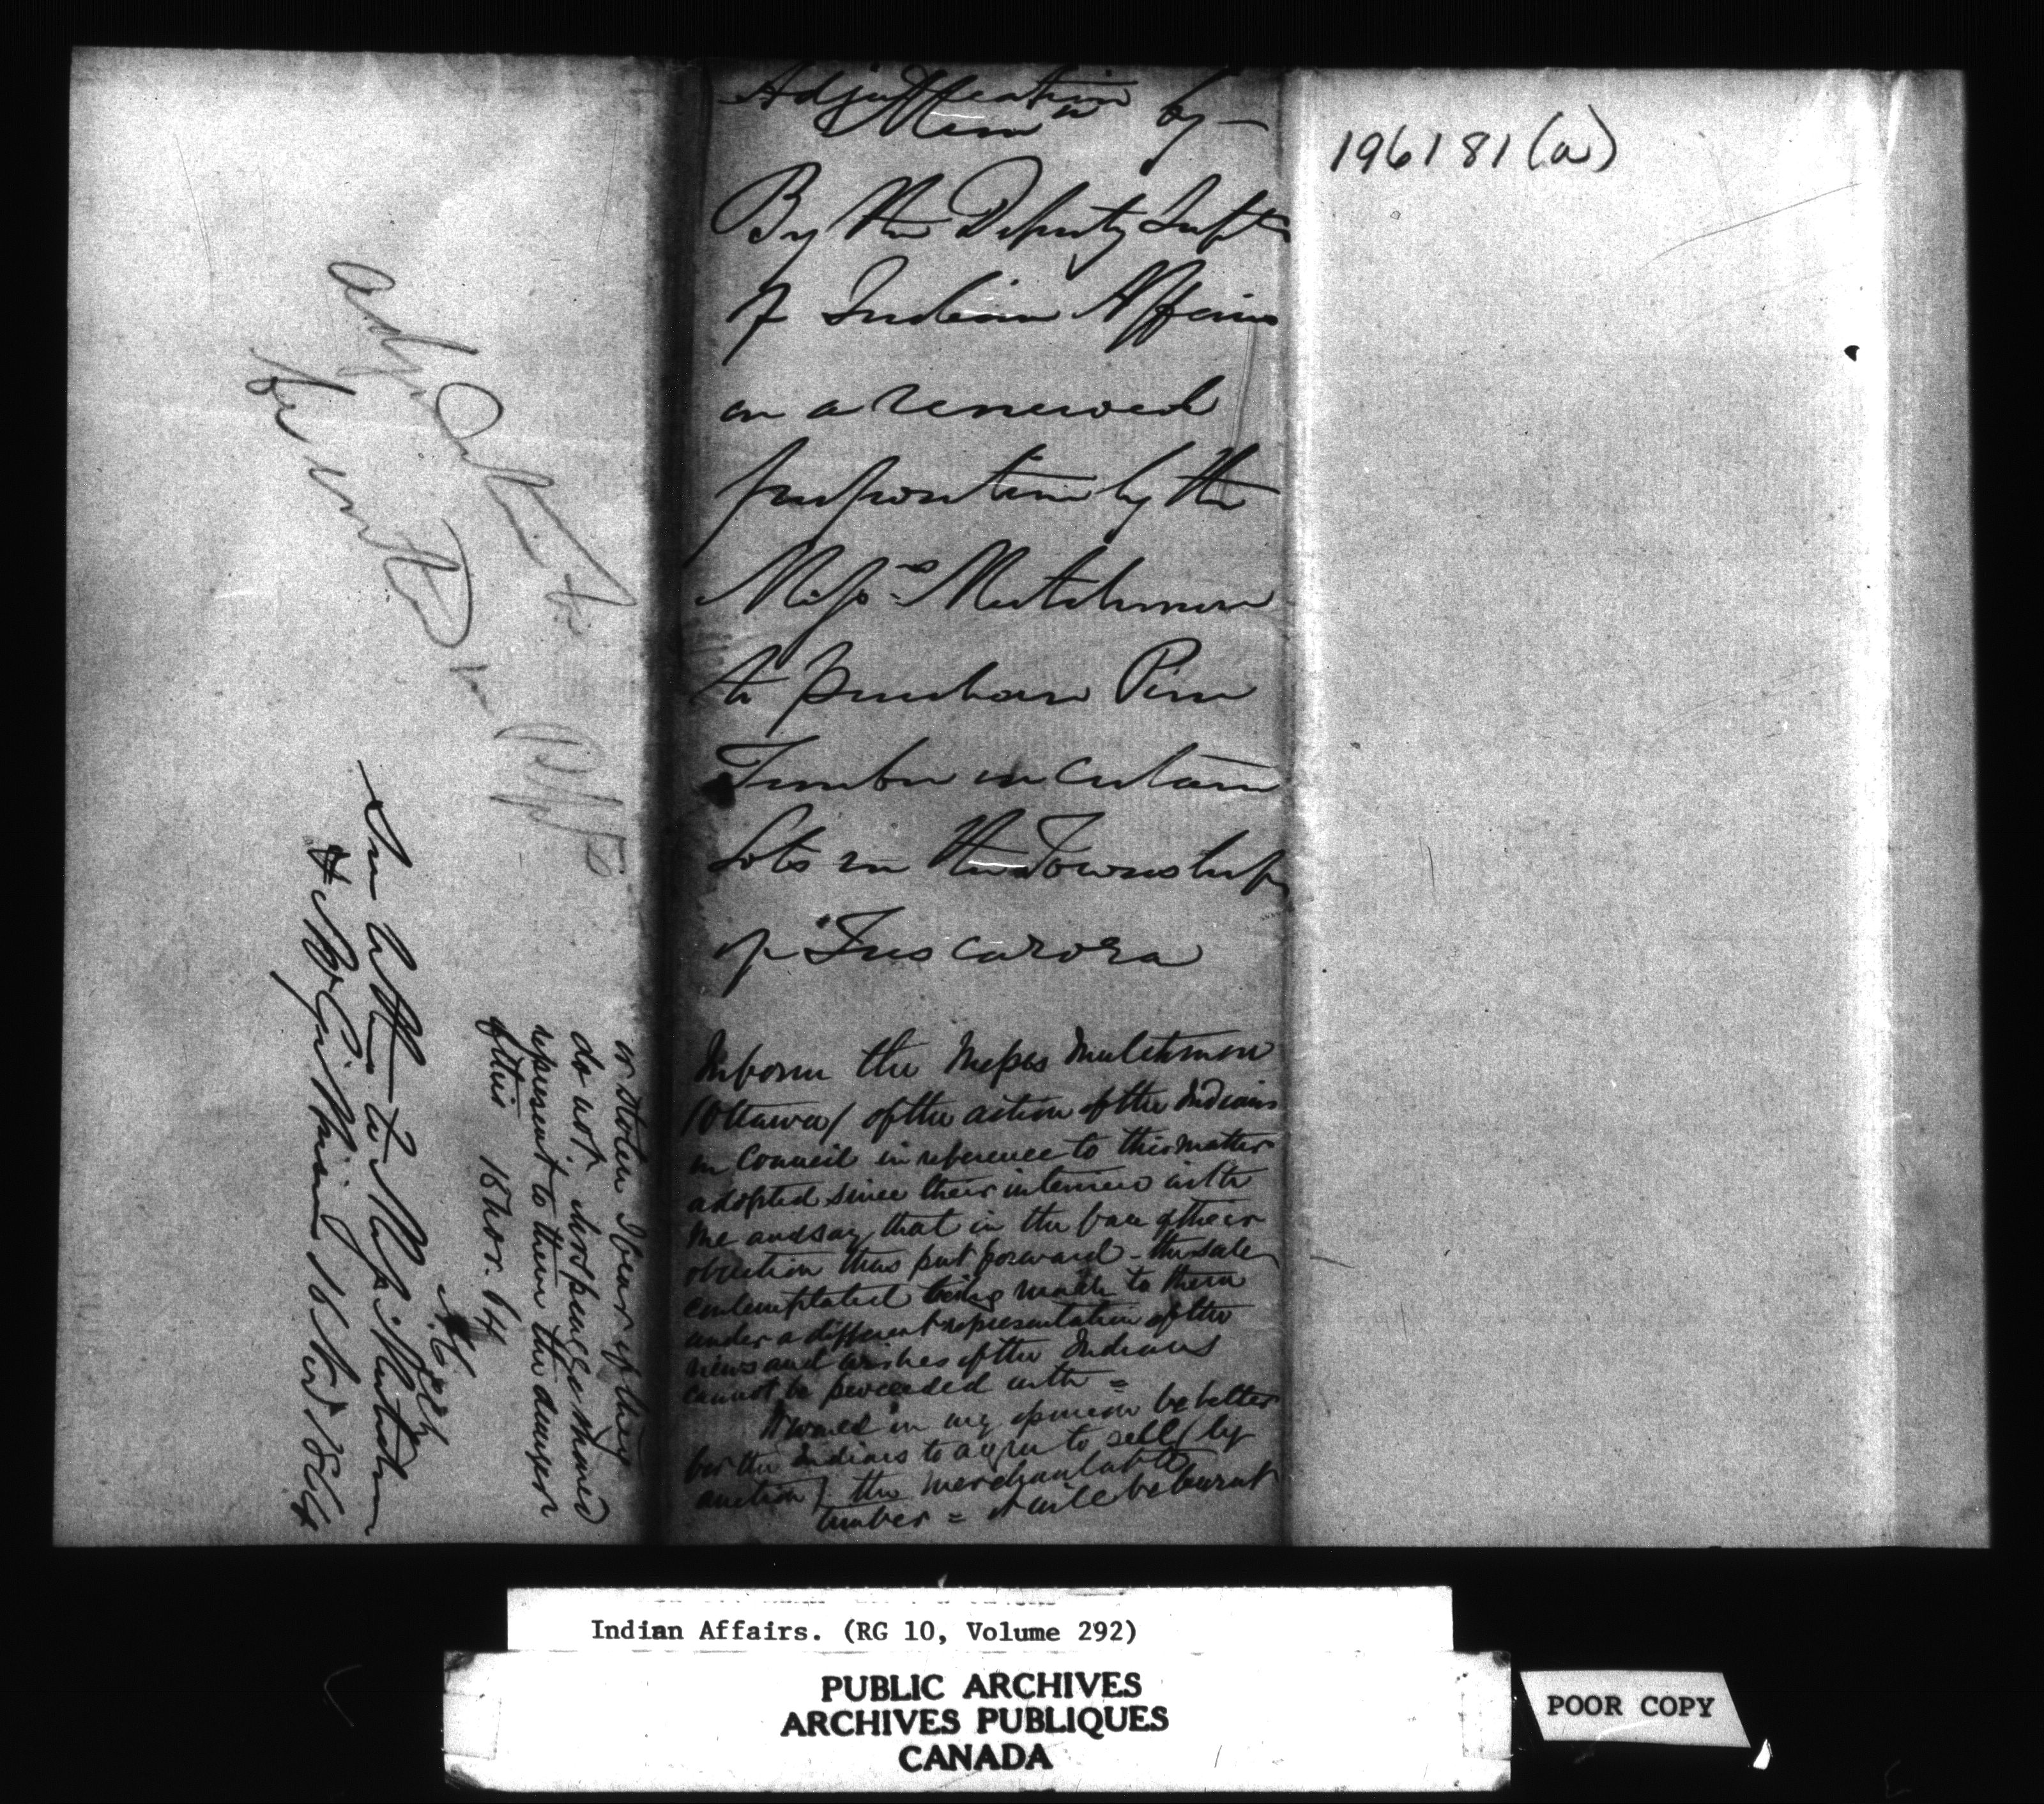 by —
By the Deputy Supt
of Indian Affairs
on a renewed
proposition by the
Messrs Mutchmore
to purchase Pine
Timber in certain
Lots in the Township
of Tuscarora
Inform the Messrs Mutchmore
(Ottawa) of the action of the Indians
in Council in reference to this matter
adopted since their interview with
me and say that in the face of their
objection thus put forward - the sale
contemplated being made to them
under a different representation of the
views and wishes of the Indians
cannot be proceeded with =
It would in my opinion be better
for the Indians to agree to sell (by
auction) the merchantable
timber = it will be burnt
or stolen I fear if they
do not.
represent to them the danger
of this
18 Nov. 64
See letter to Messrs Mutchmore
1864
196181 (a)
Indian Affairs. (RG 10, Volume 292)
PUBLIC ARCHIVES
ARCHIVES PUBLIQUES
CANADA
POOR COPY